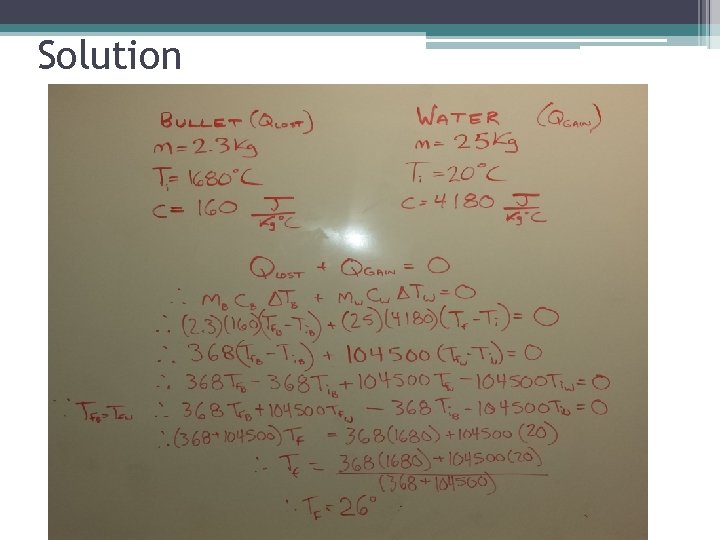 Solution
BULLET (Q LOST)
m = 2.3 Kg
Ti = 1680°C
c = 160 J/Kg°C
WATER (Q GAIN)
m = 25 Kg
Ti = 20°C
c = 4180 J/Kg°C
Q LOST + Q GAIN = 0
∴ m_B C_B ΔT_B + m_w C_w ΔT_w = 0
∴ (2.3)(160)(T_fB - T_iB) + (25)(4180)(T_f - T_i) = 0
∴ 368(T_fB - T_iB) + 104500 (T_fw - T_iw) = 0
∴ 368T_fB - 368T_iB + 104500T_f - 104500T_iw = 0
∵ T_fB = T_fw ∴ 368T_fB + 104500T_fw - 368T_iB - 104500T_iw = 0
∴ (368+104500)T_f = 368(1680) + 104500(20)
∴ T_f = 368(1680) + 104500(20) / (368+104500)
∴ T_F = 26°